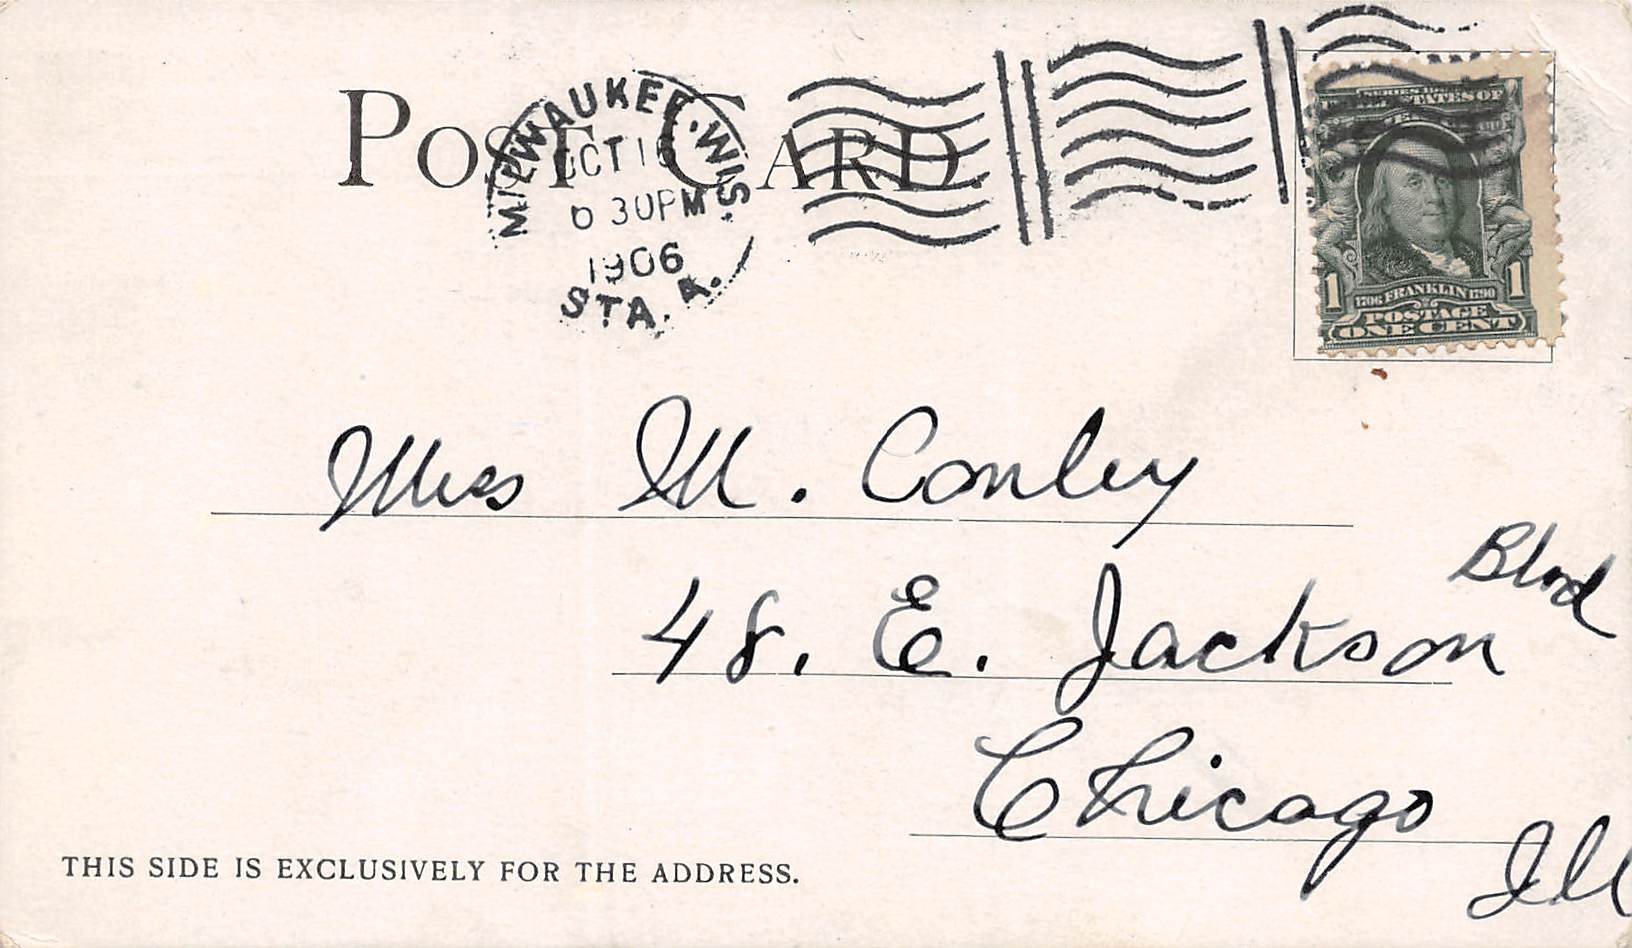 POST CARD.
MILWAUKEE, WIS.
OCT 1
6 30 PM
1906
STA. A.
SERIES 1902
STATES OF
1706 FRANKLIN 1790
1 1
POSTAGE
ONE CENT
Miss M. Conley
48. E. Jackson Blvd
Chicago
Ill
THIS SIDE IS EXCLUSIVELY FOR THE ADDRESS.